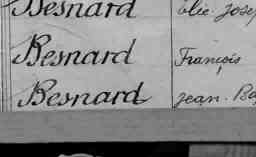 Besnard Elie. Jose
Besnard François
Besnard Jean. Ba